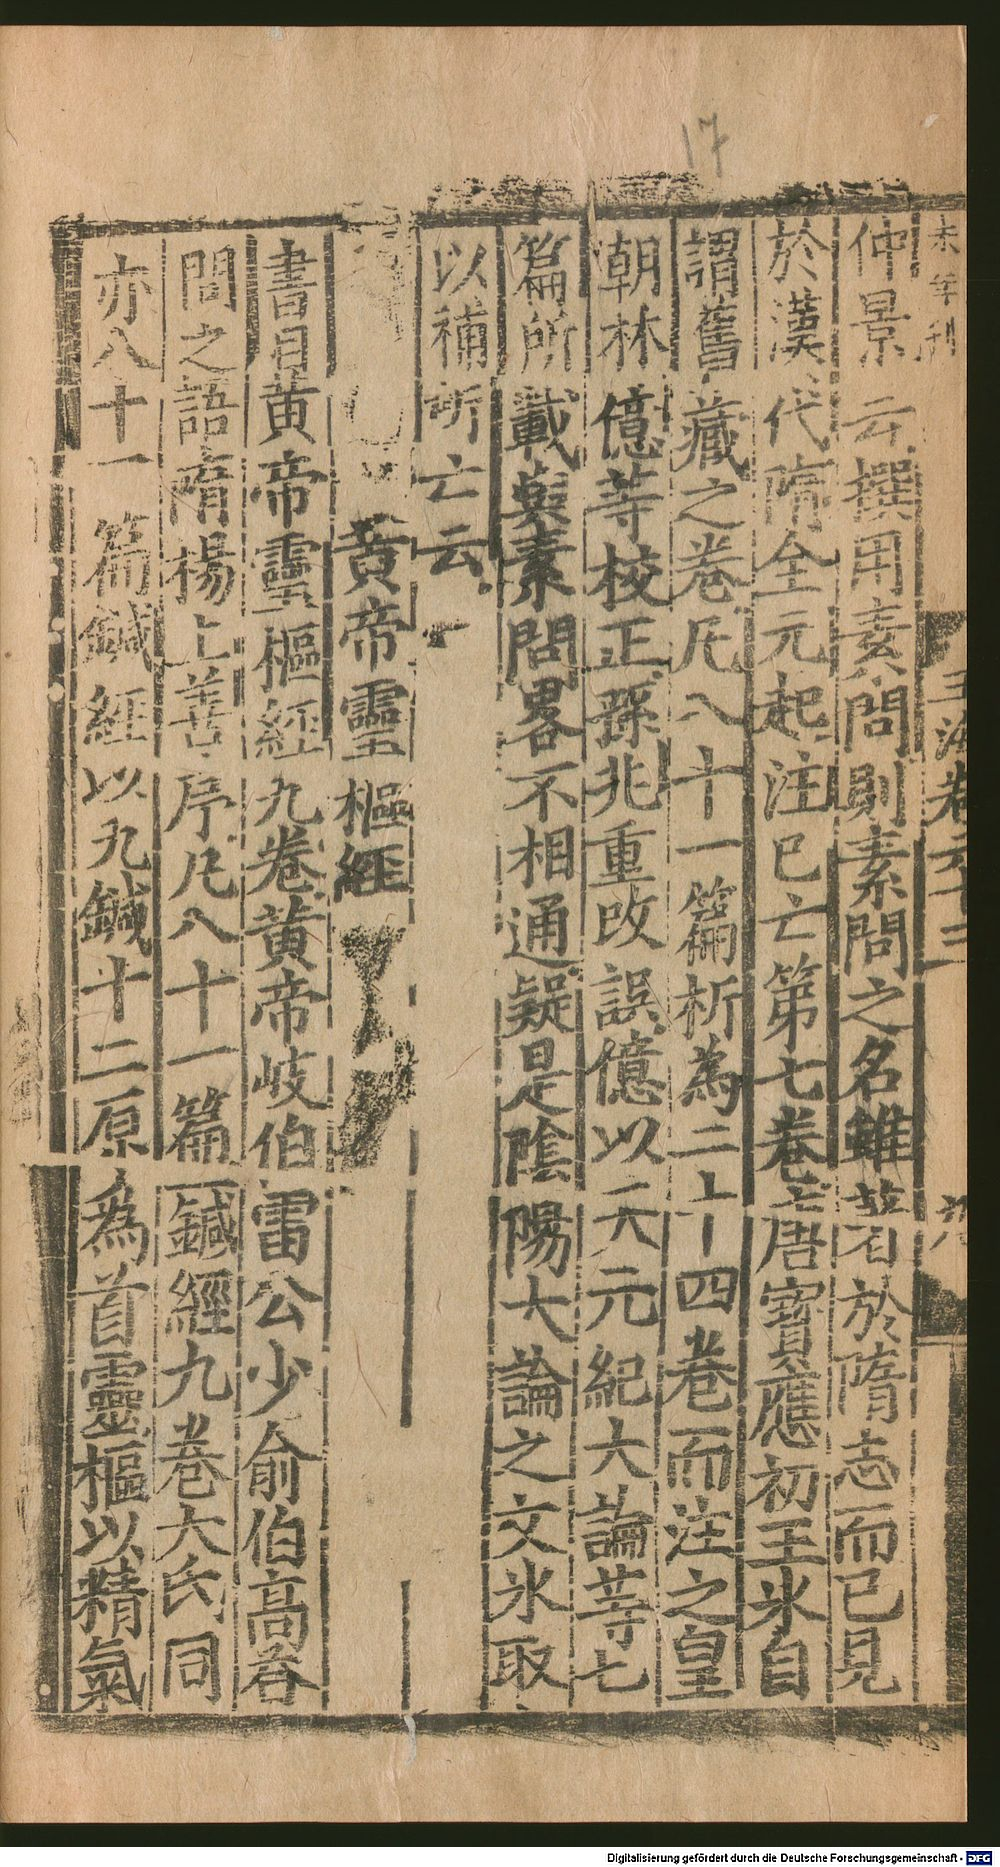 17
玉海卷六十三
仲景云撰用素問則素問之名雖著於隋志而已見
於漢代隋全元起注已亡第七卷唐寳應初王氷自
謂舊藏之卷凡八十一篇析為二十四卷而注之皇
朝林億等校正孫兆重改誤億以天元紀大論等七
篇所載與素問畧不相通疑是隂陽大論之文氷取
以補所亡云
黄帝靈樞經
書目黄帝靈樞經九卷黄帝岐伯雷公少俞伯高荅
問之語隋楊上善序凡八十一篇鍼經九卷大氐同
亦八十一篇鍼經以九鍼十二原為首靈樞以精氣
Digitalisierung gefördert durch die Deutsche Forschungsgemeinschaft - DFG